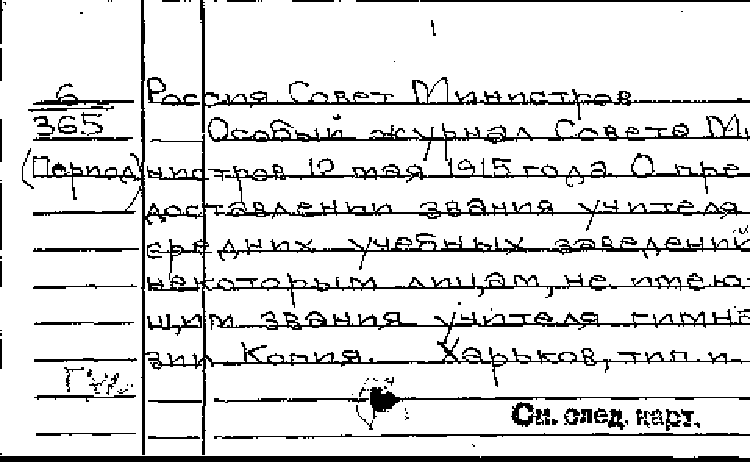 6
365
(Период)
Россия Совет Министров
Особый журнал Совета Ми
нистров 12 мая 1915 года. О пре
доставлении звания учителя
средних учебных заведений
некоторым лицам, не имею
щим звания учителя гимна
зии Копия. Харьков, тип. и
См. след. карт.